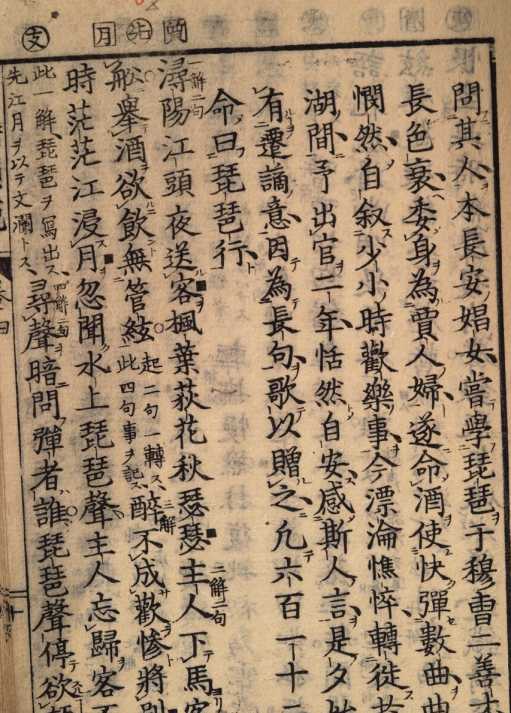 問其人本長安娼女嘗學琵琶于穆曹二善才
長色衰委身為賈人婦遂命酒使快彈數曲曲
憫然自叙少小時歡樂事今漂淪憔悴轉徙於
湖間予出官二年恬然自安感斯人言是夕始
有遷謫意因為長句歌以贈之凡六百一十二
命曰琵琶行
一解二句
潯陽江頭夜送客楓葉荻花秋瑟瑟二解二句主人下馬客
舩舉酒欲飲無管絃起二句一轉ス此四句事ヲ記ス三解醉不成歡慘將別
時茫茫江浸月忽聞水上琵琶聲主人忘歸客不
此一解琵琶ヲ寫出ス
先江月ヲ以テ文瀾トス四解二句尋聲暗問彈者誰琵琶聲停欲
支
月